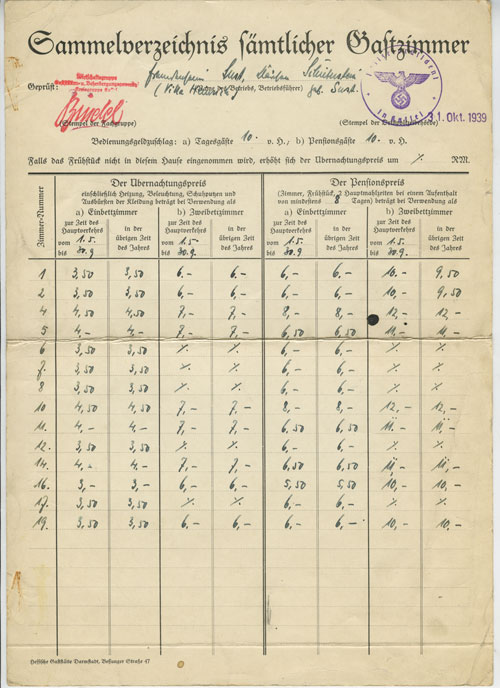 Sammelverzeichnis sämtlicher Gastzimmer
Wirtschaftsgruppe
Geprüft:
(Stempel der Fachgruppe)
in Kassel
31. Okt. 1939
Bedienungsgeldzuschlag: a) Tagesgäste 10.- v. H.; b) Pensionsgäste 10.- v. H.
Falls das Frühstück nicht in diesem Hause eingenommen wird, erhöht sich der Übernachtungspreis um % RM.
Zimmer-Nummer
Der Übernachtungspreis
einschließlich Heizung, Beleuchtung, Schuhputzen und
Ausbürsten der Kleidung beträgt bei Verwendung als
a) Einbettzimmer b) Zweibettzimmer
zur Zeit des Hauptverkehrs vom 1.5. bis 30.9
in der übrigen Zeit des Jahres
zur Zeit des Hauptverkehrs vom 1.5. bis 30.9
in der übrigen Zeit des Jahres
Der Pensionspreis
(Zimmer, Frühstück, 2 Hauptmahlzeiten bei einem Aufenthalt
von mindestens 8 Tagen) beträgt bei Verwendung als
a) Einbettzimmer b) Zweibettzimmer
zur Zeit des Hauptverkehrs vom 1.5. bis 30.9
in der übrigen Zeit des Jahres
zur Zeit des Hauptverkehrs vom 1.5. bis 30.9.
in der übrigen Zeit des Jahres
1 3,50 3,50 6,- 6,- 6,- 6,- 10,- 9,50
2 3,50 3,50 6,- 6,- 6,- 6,- 10,- 9,50
4 4,50 4,50 7,- 7,- 8,- 8,- 12,- 12,-
5 4,- 4,- 7,- 7,- 6,50 6,50 11,- 11,-
6 3,50 3,50 % % 6,- 6,- % %
7 3,50 3,50 % % 6,- 6,- % %
8 3,50 3,50 % % 6,- 6,- % %
10 4,50 4,50 7,- 7,- 8,- 8,- 12,- 12,-
11 4,- 4,- 7,- 7,- 6,50 6,50 11,- 11,-
12 3,50 3,50 % % 6,- 6,- % %
14 4,- 4,- 7,- 7,- 6,50 6,50 11,- 11,-
16 3,- 3,- 6,- 6,- 5,50 5,50 10,- 10,-
17 3,50 3,50 % % 6,- 6,- % %
19 3,50 3,50 6,- 6,- 6,- 6,- 10,- 10,-
Hessische Gaststätte Darmstadt, Bessunger Straße 47